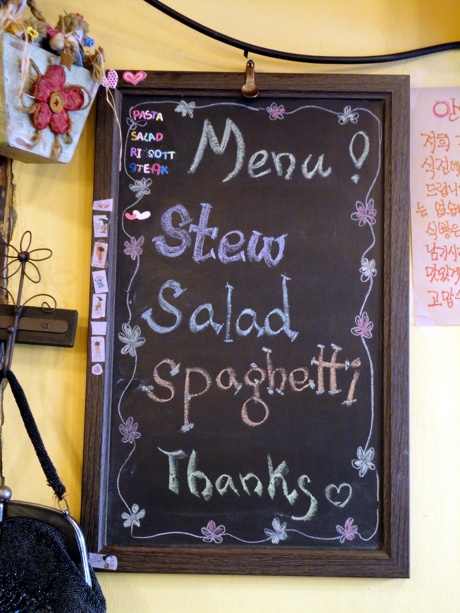 PASTA
SALAD
RISSOTT
STEAK
Menu!
Stew
Salad
Spaghetti
Thanks♡
안
저희
식
드립니
는
남기시
고맙